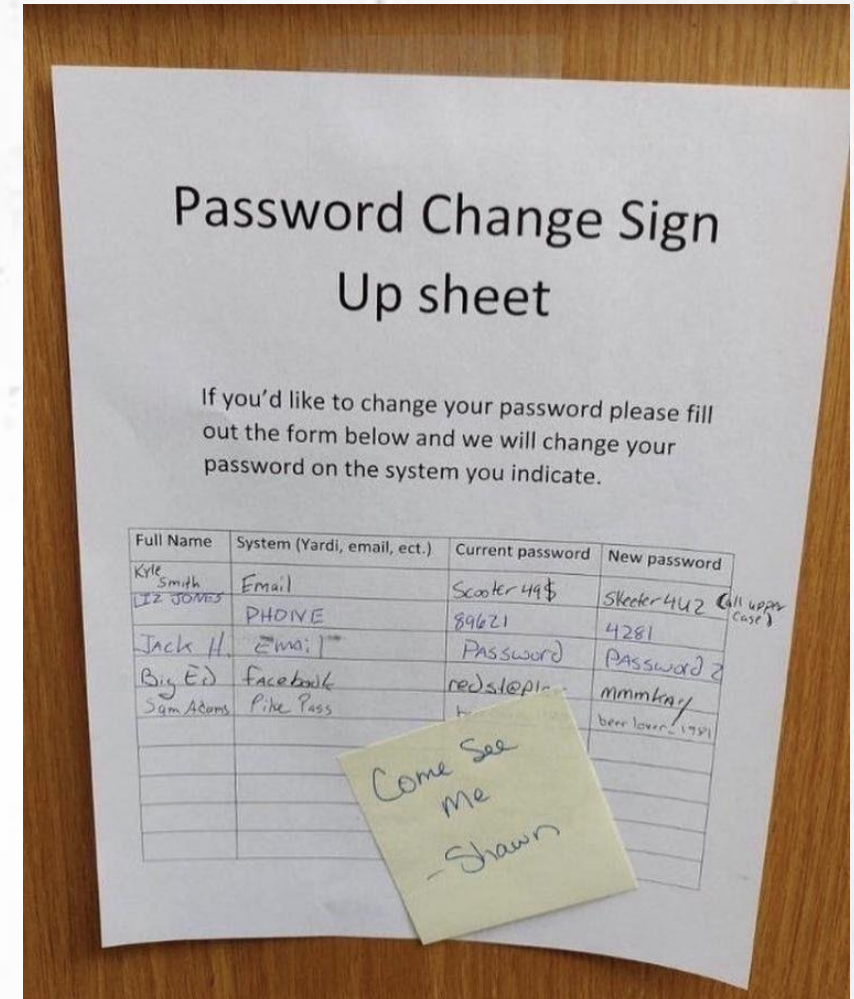 Password Change Sign
Up sheet
If you'd like to change your password please fill
out the form below and we will change your
password on the system you indicate.
Full Name System (Yardi, email, ect.) Current password New password
Kyle
Smith Email Scooter49$ Skeeter4U2 (all upper
case)
LIZ JONES PHONE 89621 4281
Jack H. Email PASSword PASSword 2
Big Ed facebook mmmkay
Sam Adams Pike Pass beer lover_1981
Come See
me
-Shawn